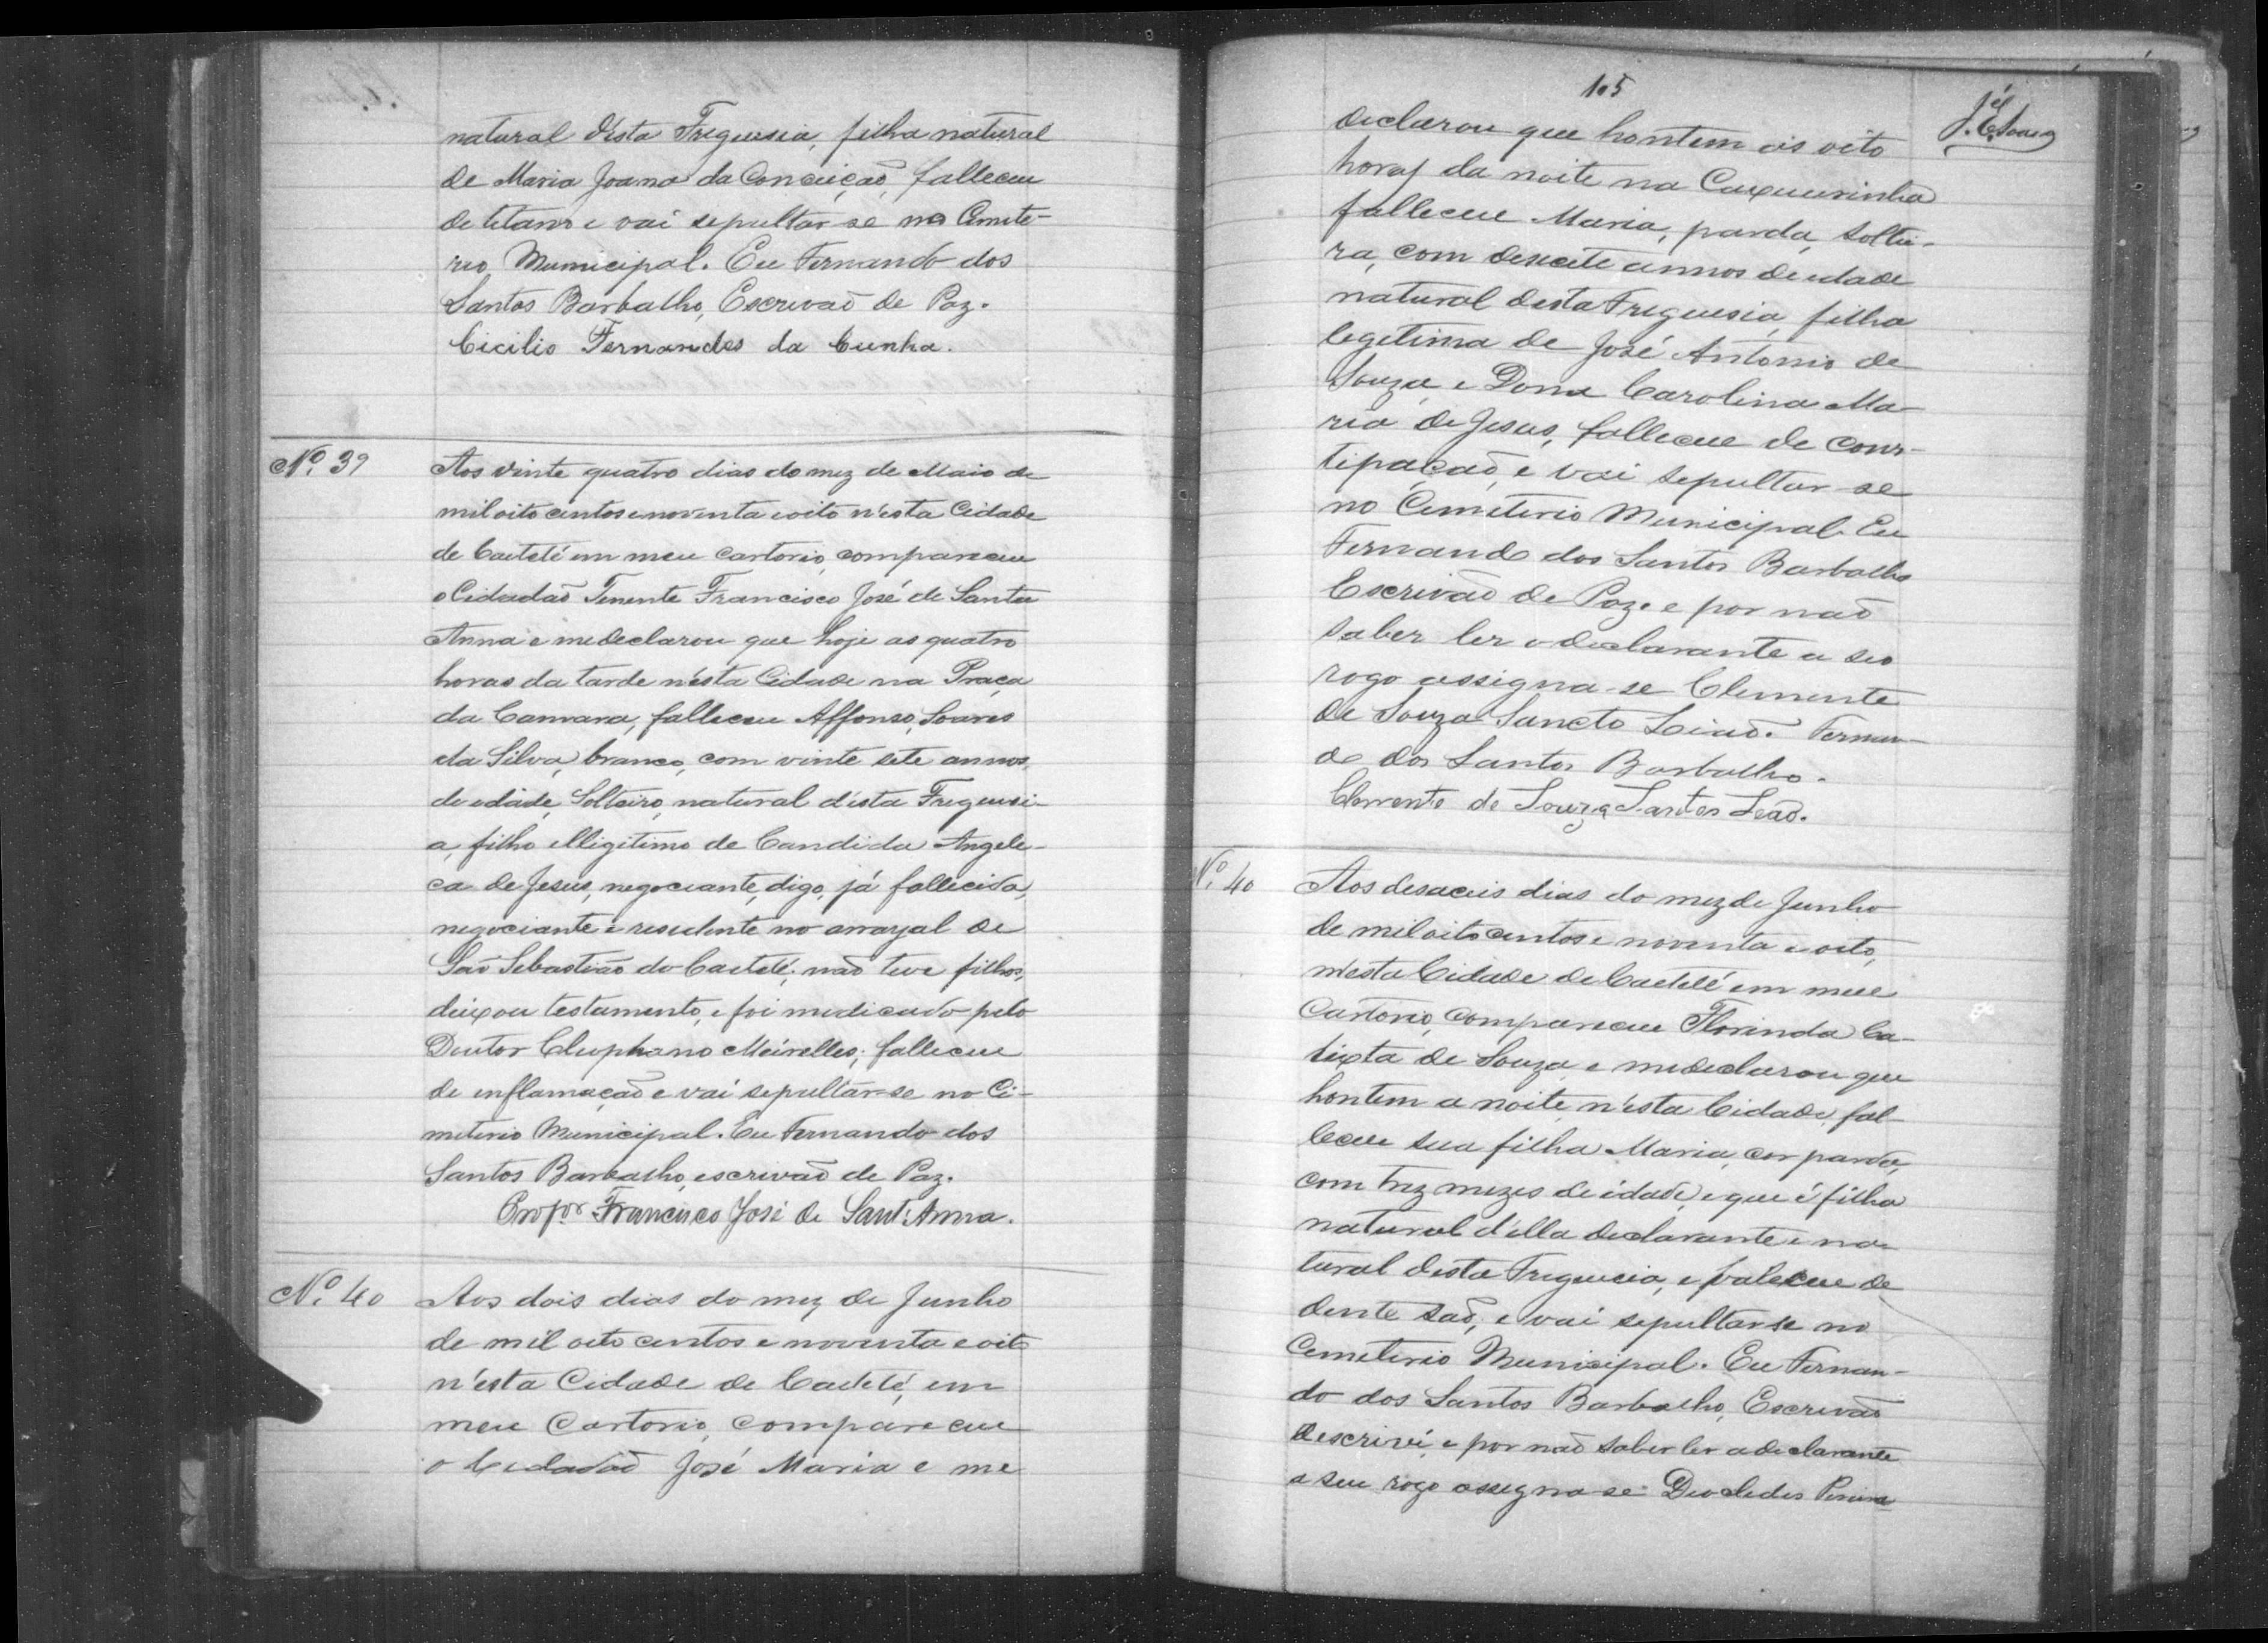 natural désta Freguesia, filha natural
de Maria Joana da Conceição, falleceu
de tetano e vai sepultar-se no Cemite-
rio Municipal. Eu Fernando dos
Santos Barbalho, Escrivaõ de Paz.
Cicilio Fernandes da Cunha.
Nº. 39
Aos vinte quatro dias do mez de Maio de
mil oito centos e noventa e oito n'esta Cidade
de Caeteté em meu Cartorio, compareceu
o Cidadaõ Tenente Francisco José de Santa
Anna e me declarou que hoje as quatro
horas da tarde n'ésta Cidade na Praça
da Camara, falleceu Affonso Soares
da Silva, branco, com vinte sete annos,
de edade, Solteiro, natural d'ésta Freguesi-
a, filho elligitimo de Candida Angele-
ca de Jesus, negociante, digo, já fallecida,
negociante e residente no arrayal de
Saõ Sebastiaõ do Caeteté; naõ teve filhos,
deixou testamento, e foi medicado pelo
Doutor Cleophano Meirelles; falleceu
de inflamaçaõ e vai sepultar-se no Ci-
miterio Municipal. Eu Fernando dos
Santos Barbalho, escrivaõ de Paz.
Profor Francisco José de Sant'Anna.
Nº. 40
Aos dois dias do mez de Junho
de mil oito centos e noventa e oito
n'ésta Cidade de Caeteté, em
meu Cartorio, compareceu
o Cidadaõ José Maria e me
105
declarou que hontem ás oito
horas da noite na Caxueirinha
falleceu Maria, parda, soltei-
ra, com desecete annos de edade
natural desta Freguesia, filha
legitima de José Antonio de
Souza, e Dona Carolina Ma-
ria de Jesus, falleceu de cons-
tipaçaõ, e vai sepultar-se
no Cemiterio Municipal. Eu
Fernando dos Santos Barbalho
Escrivaõ de Paz. e por naõ
saber ler o declarante a seo
rogo assigna-se Clemente
de Souza Sancto Liaõ. Fernan-
do dos Santos Barbalho.
Clemente de Souza Santos Leaõ.
Nº. 40
Aos desaceis dias do mez de Junho
de mil oito centos e noventa e oito,
n'esta Cidade de Caeteté em meu
Cartorio, compareceu Florinda Ca-
lixta de Souza e me declarou que
hontem a noite, n'ésta Cidade, fal-
leceu sua filha Maria, cor parda,
com trez mezes de idade, e que é filha
natural d'ella declarante e na-
tural désta Freguecia, e faleceu de
dente saõ, e vai sepultar-se no
Cemiterio Municipal. Eu Fernan-
do dos Santos Barbalho, Escrivaõ
Descrivi, e por naõ saber ler a declarante
a seu rogo assegna-se Deocledes Pereira